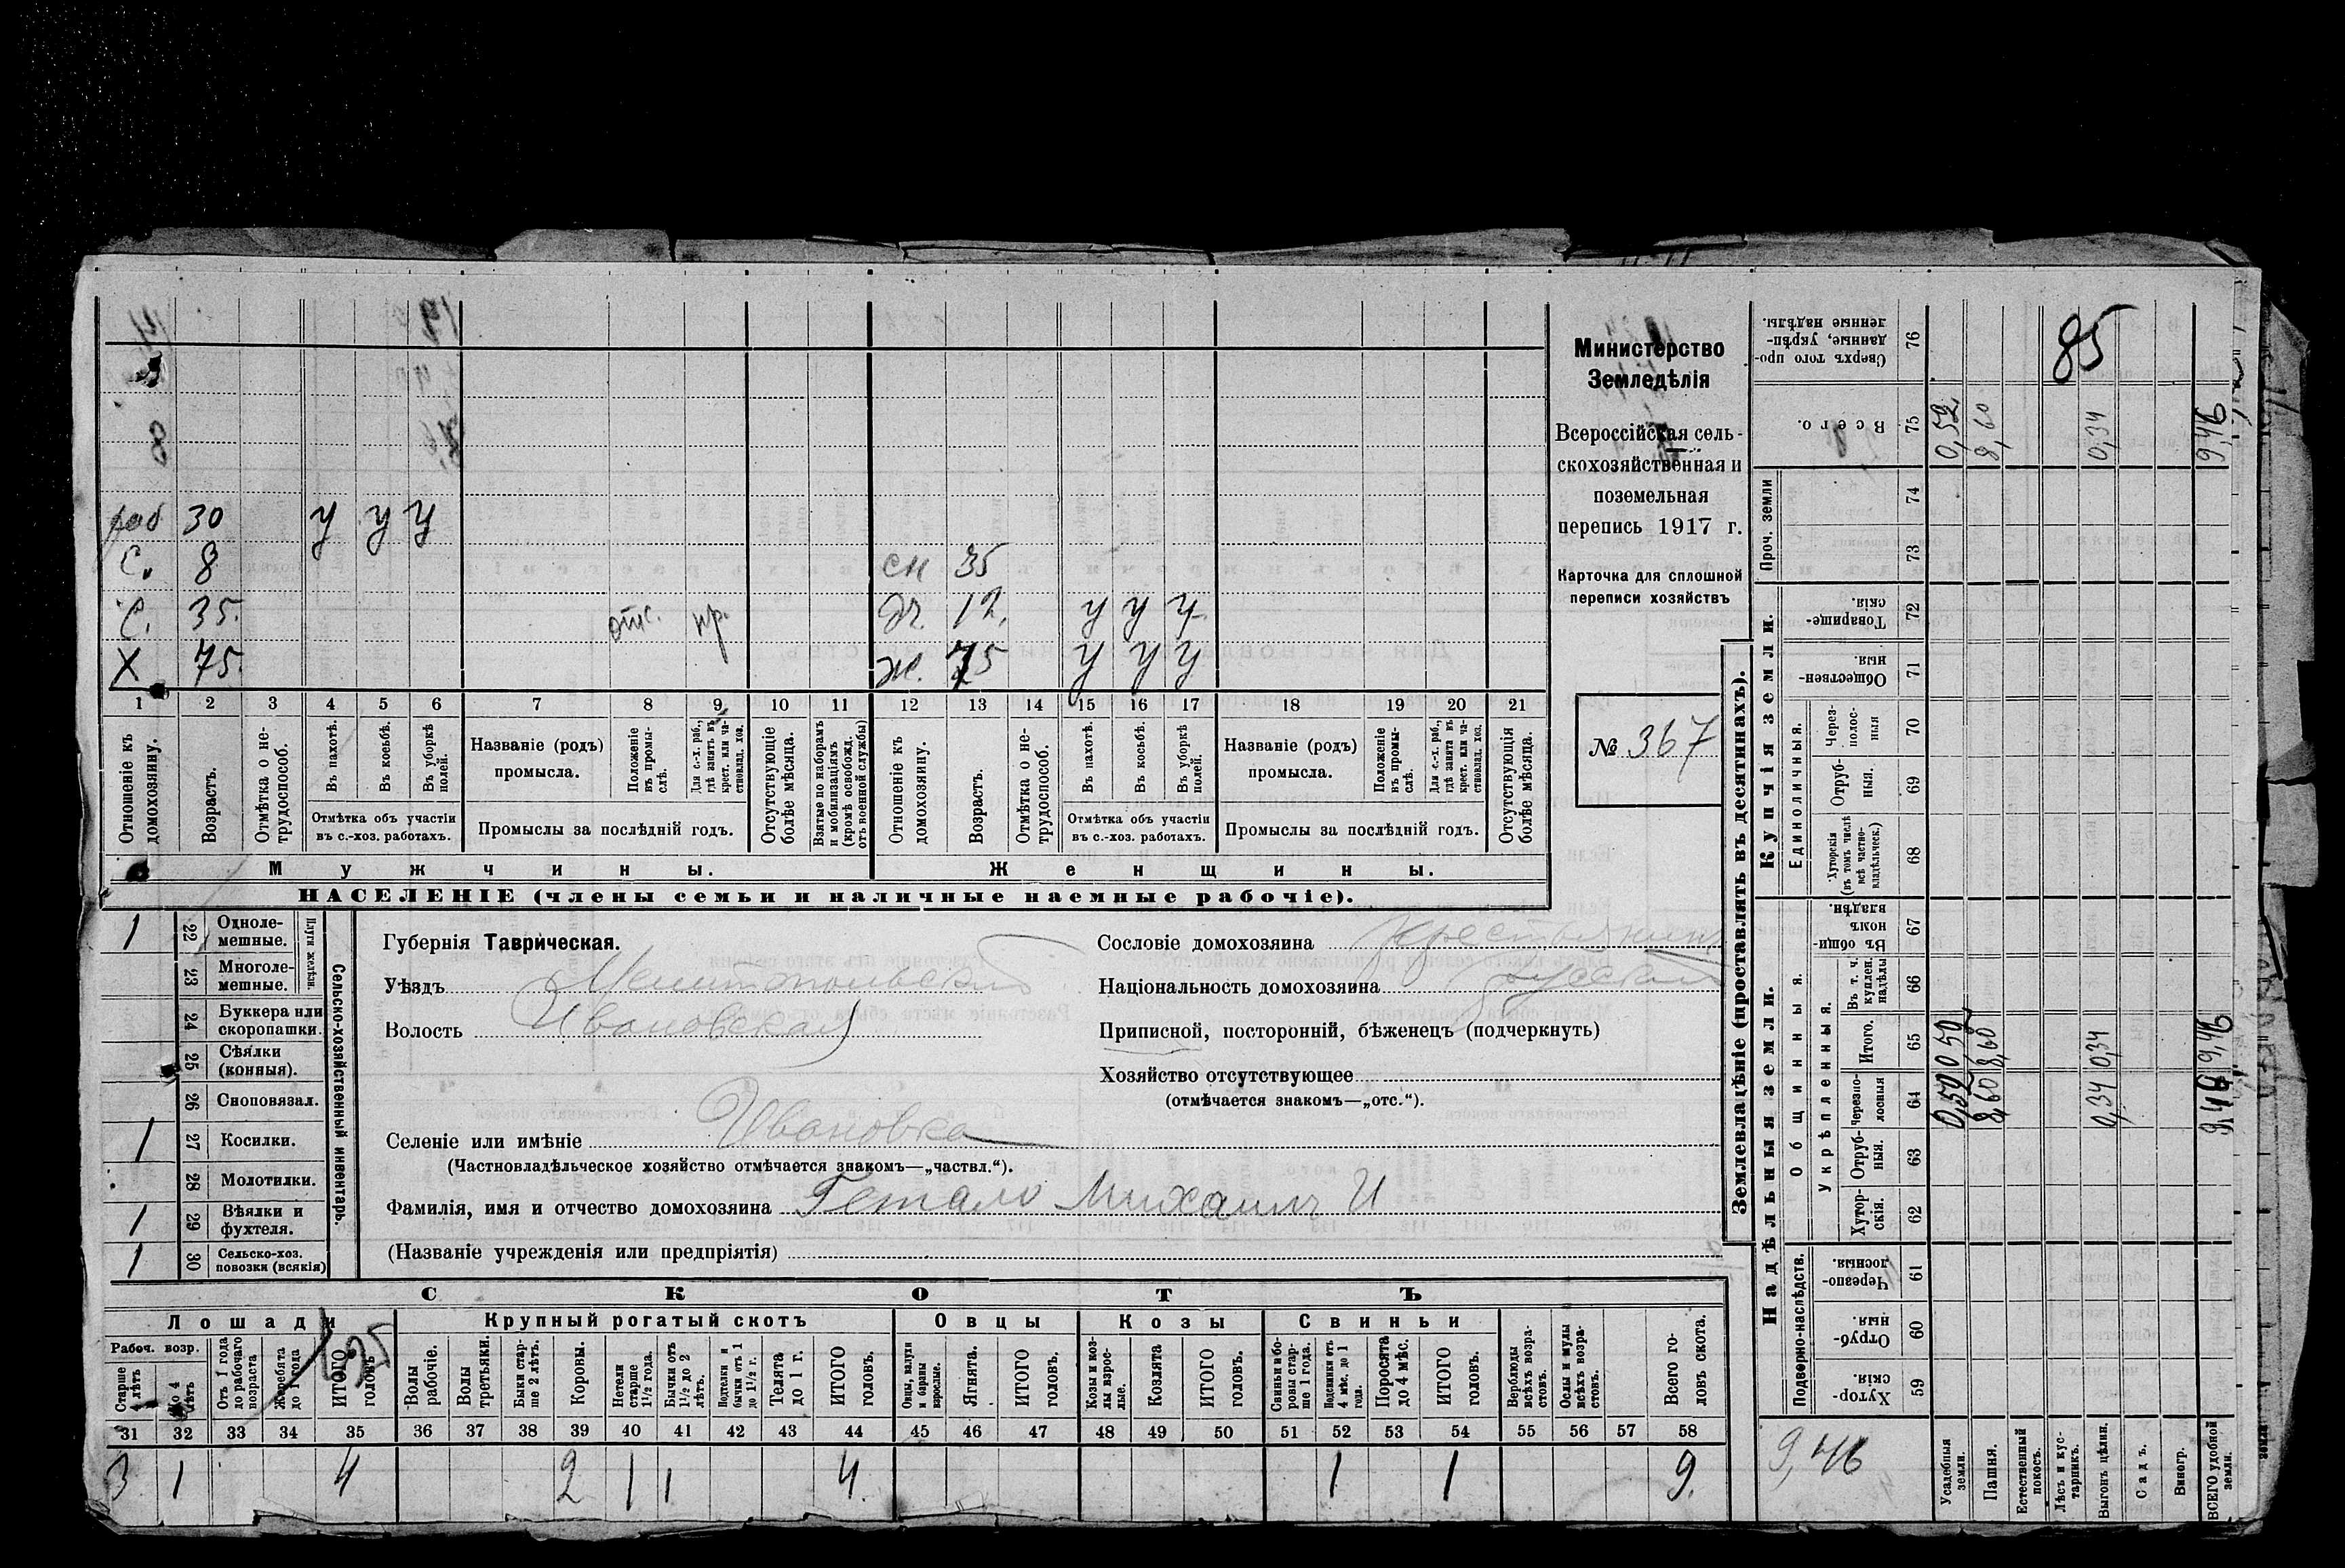 раб 30 у у у
С. 8 сн 35
С. 35. отс. пр. дч. 12. у у у
Х 75. ж. 75 у у у
1 2 3 4 5 6 7 8 9 10 11 12 13 14 15 16 17 18 19 20 21
Отношеніе къ домохозяину.
Возрастъ.
Отмѣтка о не-
трудоспособ.
Въ пахотѣ.
Въ косьбѣ.
Въ уборкѣ
полей.
Отмѣтка объ участіи
въ с.-хоз. работахъ.
Названіе (родъ)
промысла.
Положеніе
въ промы-
слѣ.
Для с.-х. раб.,
гдѣ занятъ въ
крест. или ча-
стновлад. хоз.
Промыслы за послѣдній годъ.
Отсутствующіе
болѣе мѣсяца.
Взятые по наборамъ
и мобилизаціямъ
(кромѣ освобожд.
отъ военной службы)
Отношеніе къ
домохозяину.
Возрастъ.
Отмѣтка о не-
трудоспособ.
Въ пахотѣ.
Въ косьбѣ.
Въ уборкѣ
полей.
Отмѣтка объ участіи
въ с.-хоз. работахъ.
Названіе (родъ)
промысла.
Положеніе
въ промы-
слѣ.
Для с.-х. раб.,
гдѣ занята въ
крест. или ча-
стновлад. хоз.
Промыслы за послѣдній годъ.
Отсутствующія
болѣе мѣсяца.
Мужчины. Женщины.
НАСЕЛЕНІЕ (члены семьи и наличные наемные рабочіе).
Министерство
Земледѣлія
Всероссійская сель-
скохозяйственная и
поземельная
перепись 1917 г.
Карточка для сплошной
переписи хозяйствъ
№ 367
1 22 Одноле-
мешные.
23 Многоле-
мешные.
Плуги желѣзн.
24 Буккера или
скоропашки.
25 Сѣялки
(конныя).
26 Сноповязал.
1 27 Косилки.
28 Молотилки.
1 29 Вѣялки и
фухтеля.
1 30 Сельско-хоз.
повозки (всякія)
Сельско-хозяйственный инвентарь.
Губернія Таврическая.
Уѣздъ Мелитопольскій
Волость Ивановская
Селеніе или имѣніе Ивановка
(Частновладѣльческое хозяйство отмѣчается знакомъ—„частвл.“).
Фамилія, имя и отчество домохозяина Гетало Михаилъ И
(Названіе учрежденія или предпріятія)
Сословіе домохозяина Крестьянинъ
Національность домохозяина русскій
Приписной, посторонній, бѣженецъ (подчеркнуть)
Хозяйство отсутствующее
(отмѣчается знакомъ—„отс.“).
СКОТЪ
Лошади
Крупный рогатый скотъ
Овцы
Козы
Свиньи
Рабоч. возр.
Старше
4 лѣтъ
До 4
лѣтъ
Отъ 1 года
до рабочаго
возраста
Жеребята
до 1 года
ИТОГО
головъ
Волы
рабочіе.
Волы
третьяки.
Быки стар-
ше 2 лѣтъ.
Коровы.
Нетели
старше
1½ года.
Бычки отъ
1½ до 2
лѣтъ.
Подтелки и
бычки отъ 1
до 1½ г.
Телята
до 1 г.
ИТОГО
головъ.
Овцы, валухи
и бараны
взрослые.
Ягнята.
ИТОГО
головъ.
Козы и коз-
лы взрос-
лые.
Козлята
ИТОГО
головъ.
Свиньи и бо-
ровы стар-
ше 1 года.
Подсвинки отъ
4 мѣс. до 1
года.
Поросята
до 4 мѣс.
ИТОГО
головъ.
Верблюды
всѣхъ возра-
стовъ.
Ослы и мулы
всѣхъ возра-
стовъ.
Всего го-
ловъ скота.
31 32 33 34 35 36 37 38 39 40 41 42 43 44 45 46 47 48 49 50 51 52 53 54 55 56 57 58
3 1 4 2 1 1 4. 1 1 9.
Землевладѣніе (проставлять въ десятинахъ).
Сверхъ того про-
данные, укрѣп-
ленные надѣлы.
76
85
Всего. 75 0,52 8,60 0,34 9,46
Проч. земли
74
73
Купчія земли.
Товарище-
скія. 72
Обществен-
ныя. 71
Единоличныя.
Через-
полос-
ныя 70
Отруб-
ныя. 69
Хуторскія
(въ томъ числѣ
всѣ частно-
владѣльческ.) 68
Надѣльныя земли.
Общинныя.
Въ общи
номъ
владѣн. 67
Укрѣпленныя.
Въ т. ч.
куплен.
надѣлы 66
Итого. 65 0,52 8,60 0,34 9,46
Черезпо-
лосныя 64 0,52 8,60 0,34 9,46
Отруб-
ныя. 63
Хутор-
скія. 62
Подворно-наслѣдств.
Черезпо-
лосныя. 61
Отруб-
ныя. 60
Хутор-
скія 59
9,46
Усадебныя
земли.
Пашня.
Естественный
покосъ.
Лѣсъ и кус-
тарникъ.
Выгонъ цѣлин.
Садъ.
Виногр.
ВСЕГО удобной
земли.